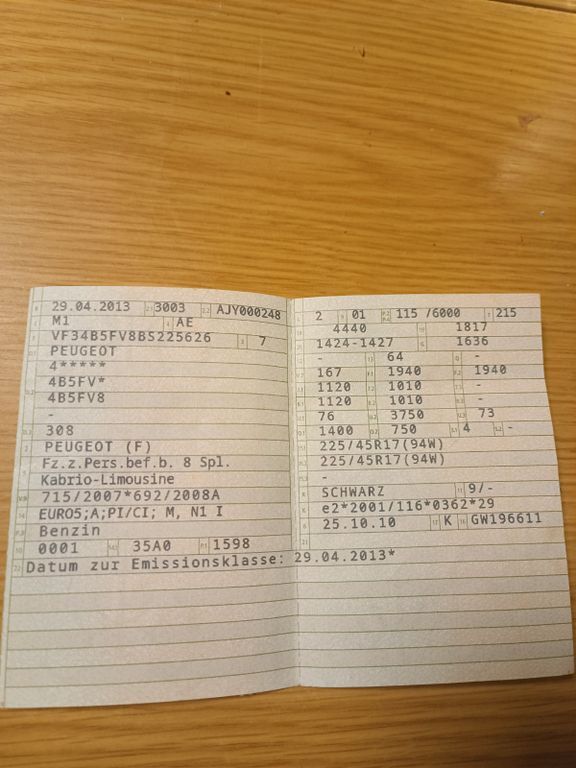 29.04.2013 3003 AJY000248
M1 AE
VF34B5FV8BS225626 7
PEUGEOT
4*****
4B5FV*
4B5FV8
-
308
PEUGEOT (F)
Fz.z.Pers.bef.b. 8 Spl.
Kabrio-Limousine
715/2007*692/2008A
EURO5;A;PI/CI; M, N1 I
Benzin
0001 35A0 1598
Datum zur Emissionsklasse: 29.04.2013*
2 01 115 /6000 215
4440 1817
1424-1427 1636
- 64 -
167 1940 1940
1120 1010 -
1120 1010 -
76 3750 73
1400 750 4 -
225/45R17(94W)
225/45R17(94W)
-
SCHWARZ 9/-
e2*2001/116*0362*29
25.10.10 K GW196611